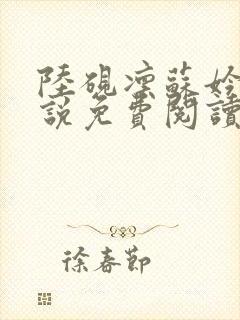 陸硯凜蘇姈
說免費閱讀
徐春節